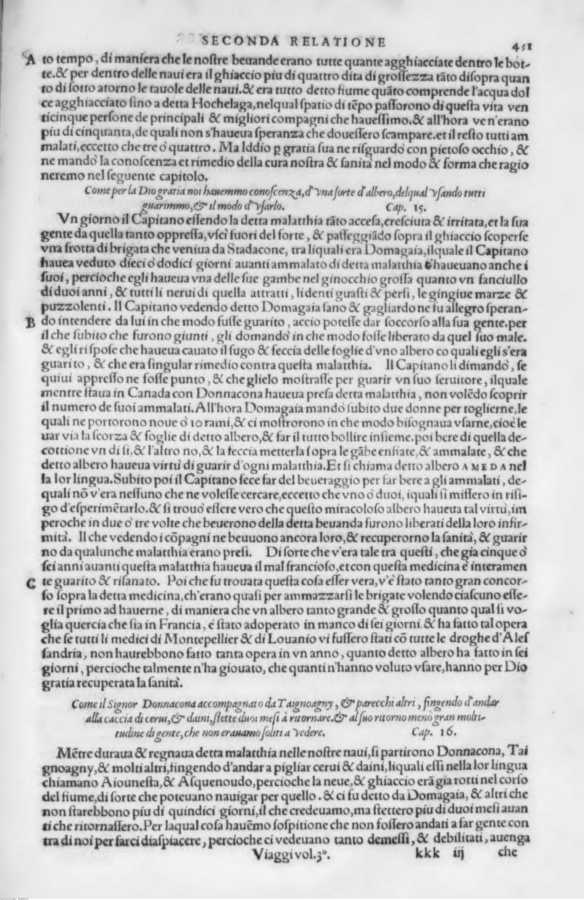 SECONDA RELATIONE
451
A to tempo, di maniera che le nostre beuande erano tutte quante agghiacciate dentro le bot-
te. & per dentro delle naui era il ghiaccio piu di quattro dita di grossezza tãto disopra quan
to di sotto atorno le tauole delle naui. & era tutto detto fiume quãto comprende l'acqua dol
ce agghiacciato fino a detta Hochelaga, nelqual spatio di tẽpo passorono di questa vita ven
ticinque persone de principali & migliori compagni che hauessimo. & all'hora ven'erano
piu di cinquanta, de quali non s'haueua speranza che douessero scampare. et il resto tutti am
malati, eccetto che tre o quattro. Ma Iddio p gratia sua ne risguardo con pietoso occhio, &
ne mandò la conoscenza et rimedio della cura nostra & sanità nel modo & forma che ragio
neremo nel seguente capitolo.
Come per la Dio gratia noi hauemmo conoscenza, d'vna sorte d'albero, delqual vsando tutti
guarimmo, & il modo d'vsarlo. Cap. 15.
Vn giorno il Capitano essendo la detta malatthia tãto accesa, cresciuta & irritata, et la sua
gente da quella tanto oppressa, vscì fuori del forte, & passeggiãdo sopra il ghiaccio scoperse
vna frotta di brigata che veniua da Stadacone, tra liquali era Domagaia, ilquale il Capitano
hauea veduto dieci o dodici giorni auanti ammalato di detta malatthia c'haueuano anche i
suoi, percioche egli haueua vna delle sue gambe nel ginocchio grossa quanto vn fanciullo
di duoi anni, & tutti li nerui di quella attratti, li denti guasti & persi, le gingiue marze &
puzzolenti. Il Capitano vedendo detto Domagaia sano & gagliardo ne fu allegro speran-
B do intendere da lui in che modo fusse guarito, accio potesse dar soccorso alla sua gente. per
il che subito che furono giunti, gli domandò in che modo fosse liberato da quel suo male.
& egli rispose che haueua cauato il sugo & feccia delle foglie d'vno albero co quali egli s'era
guarito, & che era singular rimedio contra questa malatthia. Il Capitano li dimandò, se
quiui appresso ne fosse punto, & che glielo mostrasse per guarir vn suo seruitore, ilquale
mentre staua in Canada con Donnacona haueua presa detta malatthia, non volẽdo scoprir
il numero de suoi ammalati. All'hora Domagaia mandò subito due donne per toglierne, le
quali ne portorono noue o 10 rami, & ci mostrorono in che modo bisognaua vsarne, cioè le
uar via la scorza & foglie di detto albero, & far il tutto bollire insieme. poi bere di quella de-
cottione vn di sì, & l'altro no, & la feccia metterla sopra le gãbe enfiate, & ammalate, & che
detto albero haueua virtù di guarir d'ogni malatthia. Et si chiama detto albero AMEDA nel
la lor lingua. Subito poi il Capitano fece far del beueraggio per far bere a gli ammalati, de-
quali nõ v'era nessuno che ne volesse cercare, eccetto che vno o duoi, iquali si missero in risi-
go d'esperimẽtarlo. & si trouò essere vero che questo miracoloso albero haueua tal virtù, im
peroche in due o tre volte che beuerono della detta beuanda furono liberati della loro infir-
mità. Il che vedendo i cõpagni ne beuuono ancora loro, & recuperorno la sanità, & guarir
no da qualunche malatthia erano presi. Di sorte che v'era tale tra questi, che gia cinque o
sei anni auanti questa malatthia haueua il mal franciose, et con questa medicina è interamen
C te guarito & risanato. Poi che fu trouata questa cosa esser vera, v'è stato tanto gran concor-
so sopra la detta medicina, ch'erano quasi per ammazzarsi le brigate volendo ciascuno esse-
re il primo ad hauerne, di maniera che vn albero tanto grande & grosso quanto qual si vo-
glia quercia che sia in Francia, è stato adoperato in manco di sei giorni & ha fatto tal opera
che se tutti li medici di Montepellier & di Louanio vi fussero stati cõ tutte le droghe d'Ales
sandria, non haurebbono fatto tanta opera in vn anno, quanto detto albero ha fatto in sei
giorni, percioche talmente n'ha giouato, che quanti n'hanno voluto vsare, hanno per Dio
gratia recuperata la sanità.
Come il Signor Donnacona accompagnato da Taignoagny, & parecchi altri, fingendo d'andar
alla caccia di cerui, & daini, stette duoi mesi à ritornare. & al suo ritorno menò gran molti-
tudine di gente, che non erauamo soliti a vedere. Cap. 16.
Mẽtre duraua & regnaua detta malatthia nelle nostre naui, si partirono Donnacona, Tai
gnoagny, & molti altri, fingendo d'andar a pigliar cerui & daini, liquali essi nella lor lingua
chiamano Aiounesta, & Asquenoudo, percioche la neue, & ghiaccio era gia rotti nel corso
del fiume, di sorte che poteuano nauigar per quello. & ci fu detto da Domagaia, & altri che
non starebbono piu di quindici giorni, il che credeuamo, ma stettero piu di duoi mesi auan
ti che ritornassero. Per laqual cosa hauẽmo sospitione che non fossero andati a far gente con
tra di noi per farci dispiacere, percioche ci vedeuano tanto demessi, & debilitati, auenga
Viaggi vol. 3º. kkk iij che